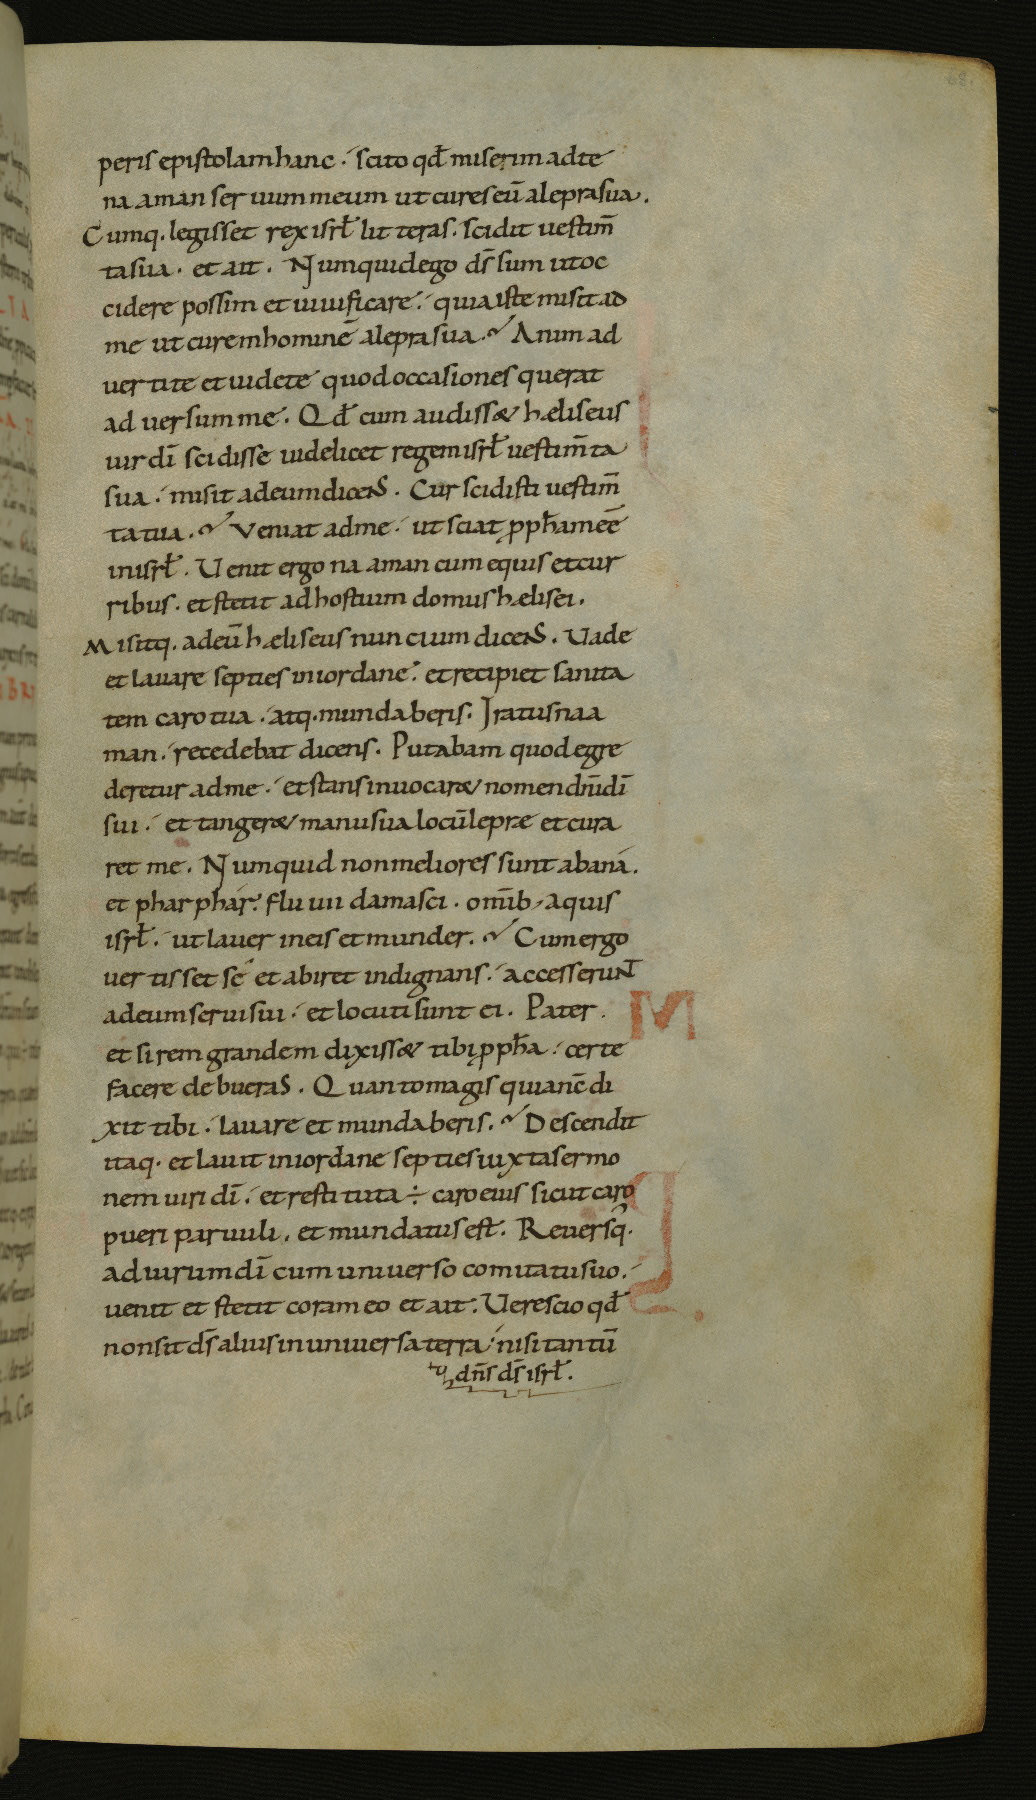 68.
peris epistolam hanc · scito qd̄ miserim ad te
na aman seruum meum ut cures eū a lepra sua.
Cumq. legisset rex isrł litteras · scidit uestim̄
ta sua · et ait · Numquid ego ds̄ sum ut oc
cidere possim et uiuificare · quia iste misit ad
me ut curem hominē a lepra sua. Anim ad
uertite et uidete quod occasiones querat
ad uersum me · Qd̄ cum audiss& hęliseus
uir dī scidisse uidelicet regem isrł uestim̄ta
sua · misit ad eum dicens · Cur scidisti uestim̄
ta tua. Veniat ad me · ut sciat pph̄am eē
in isrł. Uenit ergo na aman cum equis et cur
ribus · et stetit ad hostium domus hęlisei.
Misitq. ad eū hęliseus nuncium dicens · Uade
et lauare septies in iordane · et recipiet sanita
tem caro tua · atq. mundaberis. Iratus naa
man · recedebat dicens · Putabam quod egre
deretur ad me · et stans inuocar& nomen dn̄i dī
sui · et tanger& manu sua locū lepræ et cura
ret me. Numquid non meliores sunt abana.
et pharphar · fluuii damasci · omīb; aquis
isrł · ut lauer in eis et munder. Cum ergo
uertisset sē et abiret indignans · accesserunt
ad eum serui sui · et locuti sunt ei · Pater.
et si rem grandem dixiss& tibi pph̄a · certe
facere debueras. Quanto magis quia nc̄ di
xit tibi · lauare et mundaberis. Descendit
itaq. et lauit in iordane septies iuxta sermo
nem uiri dī · et restituta ÷ caro eius sicut caro
pueri paruuli, et mundatus est. Reuersq̓.
ad uirum dī cum uniuerso comitatu suo.
uenit et stetit coram eo et ait · Uere scio qd̄
non sit ds̄ alius in uniuersa terra nisi tantū
dn̄s ds̄ isrł.